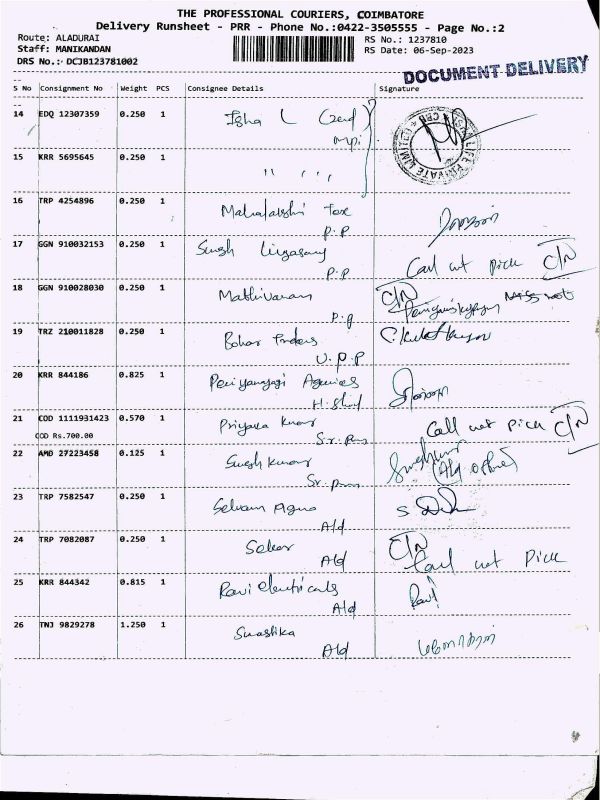 THE PROFESSIONAL COURIERS, COIMBATORE
Delivery Runsheet - PRR - Phone No.:0422-3505555 - Page No.:2
Route: ALADURAI RS No.: 1237810
Staff: MANIKANDAN RS Date: 06-Sep-2023
DRS No.: DCJB123781002
DOCUMENT DELIVERY
S No Consignment No Weight PCS Consignee Details Signature
14 EDQ 12307359 0.250 1 Isha L
LIFE PRIVATE LIMITED
15 KRR 5695645 0.250 1 " "
16 TRP 4254896 0.250 1 Mahalakshi Tex
P.P
17 GGN 910032153 0.250 1 Call not pick C/N
P.P
18 GGN 910028030 0.250 1 Mathivanan C/N
19 TRZ 210011828 0.250 1
U.P.P
20 KRR 844186 0.825 1 Periyanayagi Agencies
21 COD 1111931423 0.570 1 Priyanka Call not pick C/N
COD Rs.700.00
22 AMD 27223458 0.125 1 Suresh Kumar
23 TRP 7582547 0.250 1 Selvam
Ald
24 TRP 7082087 0.250 1 Sekar C/N
Ald Call not Pick
25 KRR 844342 0.815 1 Ravi electricals Ravi
Ald
26 TNJ 9829278 1.250 1 Swastika
Ald